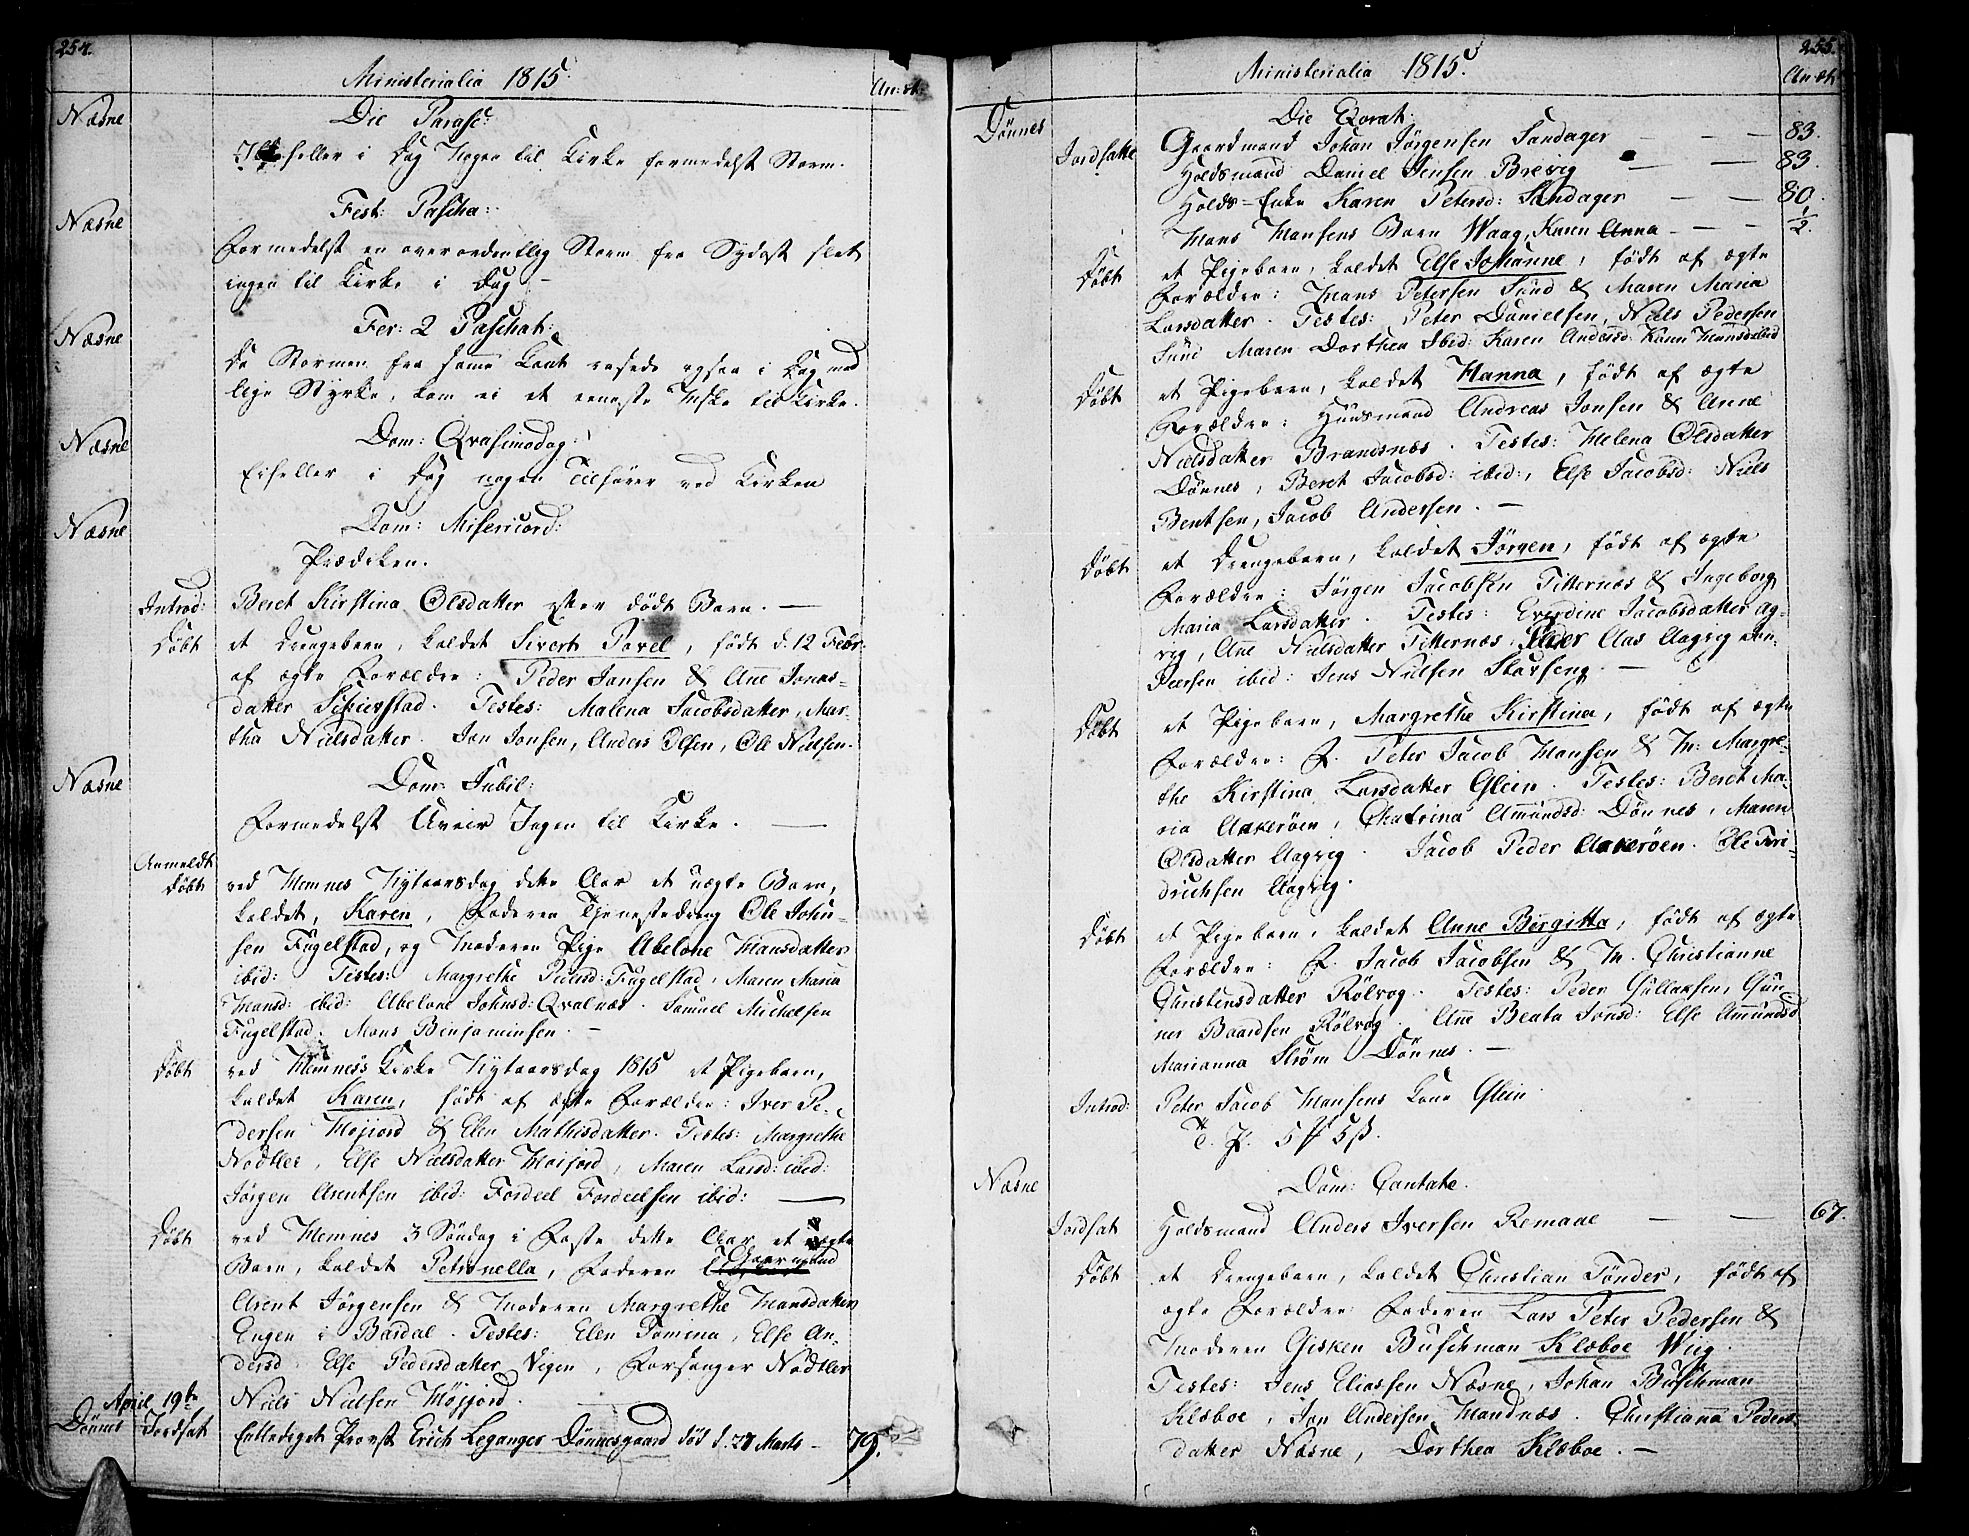 254.
Ministerialia 1815.
An: æt:
Næsne
Die Parasc:
heller i Dag Nogen til Kirke formedelst Storm.
Næsne
Fest: Pascha:
Formedelst en overordentlig Storm fra Sydost slet
ingen til Kirke i Dag –
Næsne
Fer: 2 Paschat:
Da Stormen fra samme Kant rasede ogsaa i Dag med
lige Styrke, kom ei et eneste Mske til Kirke.
Næsne
Dom: Qvasimodog:
Ei heller i Dag nogen Tilhører ved Kirken
Næsne
Dom: Misericord:
Prædiken.
Introd: Beret Kirstina Olsdatter efter dødt Barn. —
Døbt et Drengebarn, kaldet Sivert Povel, født d. 12 Febr:
af ægte Forældre: Peder Jansen & Ane Jonas-
datter Schierstad. Testes: Malena Jacobsdatter, Mar-
tha Nielsdatter. Jon Jonsen, Anders Olsen, Ole Nielsen.
Næsne
Dom: Jubil:
Formedelst Uveir Ingen til Kirke. —
Anmeldt
Døbt ved Hemnes Nytaarsdag dette Aar et uægte Barn,
kaldet, Karen, Faderen Tjenestedreng Ole John-
sen Fugelstad, og Moderen Pige Abelone Hansdatter
ibid: Testes: Margrethe Pedersd: Fugelstad, Maren Maria
Hansd: ibid: Abelone Johnsd: Qvalnæs. Samuel Michelsen
Fugelstad. Mons Binjaminsen. –
Døbt ved Hemnes's Kirke Nytaarsdag 1815 et Pigebarn,
kaldet Karen, født af ægte Forældre: Iver Pe-
dersen Højjord & Elen Mathisdatter. Testes: Margrethe
Nødtler, Else Nielsdatter Højjord, Maren Larsd: ibid:
Jørgen Arentsen ibid: Fordeel Fordeelsen ibid: —
Døbt ved Hemnes 3 Søndag i Faste dette Aar et ægte
Barn, kaldet Petronella, Faderen Gaarmand
Arent Jørgensen & Moderen Margrethe Hansdatter
Engen i Bardal. Testes: Elen Tomina, Else An-
dersd: Else Pedersdatter Vigen, Forsanger Nødtler
Niels Nielsen Højjord.
April 19de
Dønnes Jordsat Entlediget Provst Erich Leganger Dønnesgaard død d. 27 Marts – 79.
255.
Ministerialia 1815.
An: æt:
Dønnes
Die Rorat:
Jordsatte Gaardmand Johan Jørgensen Sandager — — 83.
Holdsmand Daniel Jensen Brevig — — 83.
Holds-Enke Karen Petersd: Sandager — — 80.
Hans Hansens Barn Waag, Karen Anna — — ½.
Døbt et Pigebarn, kaldet Else Johanne, født af ægte
Forældre: Hans Petersen Sund & Maren Maria
Larsdatter. Testes: Peter Danielsen, Niels Pedersen
Sund Maren Dorthea ibid: Karen Andersd: Karen Hansd: ibid
Døbt et Pigebarn, kaldet Hanna, født af ægte
Forældre: Huusmand Andreas Jonsen & Anne
Nielsdatter Brandsnæs. Testes: Helena Olsdatter
Dønnes, Beret Jacobsd: ibid:, Else Jacobsd: Niels
Bentsen, Jacob Andersen. –
Døbt et Drengebarn, kaldet Jørgen, født af ægte
Forældre: Jørgen Jacobsen Titternæs & Ingeborg
Maria Larsdatter. Testes: Everdine Jacobsdatter Ag-
vig, Ane Nielsdatter Titternæs, Aas Aagvig
Peersen ibid: Jens Nielsen Skavseng. —
Døbt et Pigebarn, Margrethe Kirstina, født af ægte
Forældre: F. Peter Jacob Hansen & M: Margre-
the Kirstina Larsdatter Glein. Testes: Beret Ma-
ria Aakerøen, Chatrina Amundsd: Dønnes, Maren
Olsdatter Aagvig. Jacob Peder Aakerøen. Ole Fri-
drichsen Aagvig.
Døbt et Pigebarn, kaldet Anne Birgitta, født af ægte
Forældre: F. Jacob Jacobsen & M. Christianne
Christensdatter Rølvog. Testes: Peder Gullaksen, Gun-
ner Baardsen Rølvog. Ane Beata Jonsd: Else Amundsd
Marianna Strøm Dønnes. –
Introd: Peter Jacob Hansens Kone Glein
T. P. 5 5 ß.
Næsne
Dom: Cantate.
Jordsat Holdsmand Anders Iversen Remaae — — 67.
Døbt et Drengebarn, kaldet Christian Tønder, født af
ægte Forældre Faderen Lars Peter Pedersen &
Moderen Gisken Buschman Klæboe Wiig.
Testes: Jens Eliassen Næsne, Johan Buschman
Klæboe, Jon Andersen Handnæs. Christianna Peders-
datter Næsne, Dorthea Klæboe. –